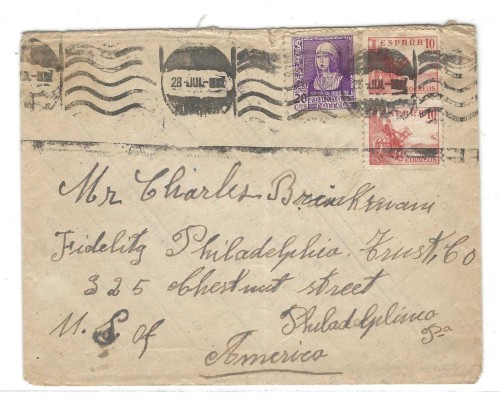 28-JUL-
20
ESPAÑA 10
CORREOS
10
CORREOS
Mr Charles Brinkmann
Fidelity Philadelphia Trust, Co
325 Chestnut street
Philadelphia
Pa
U.S. of
America